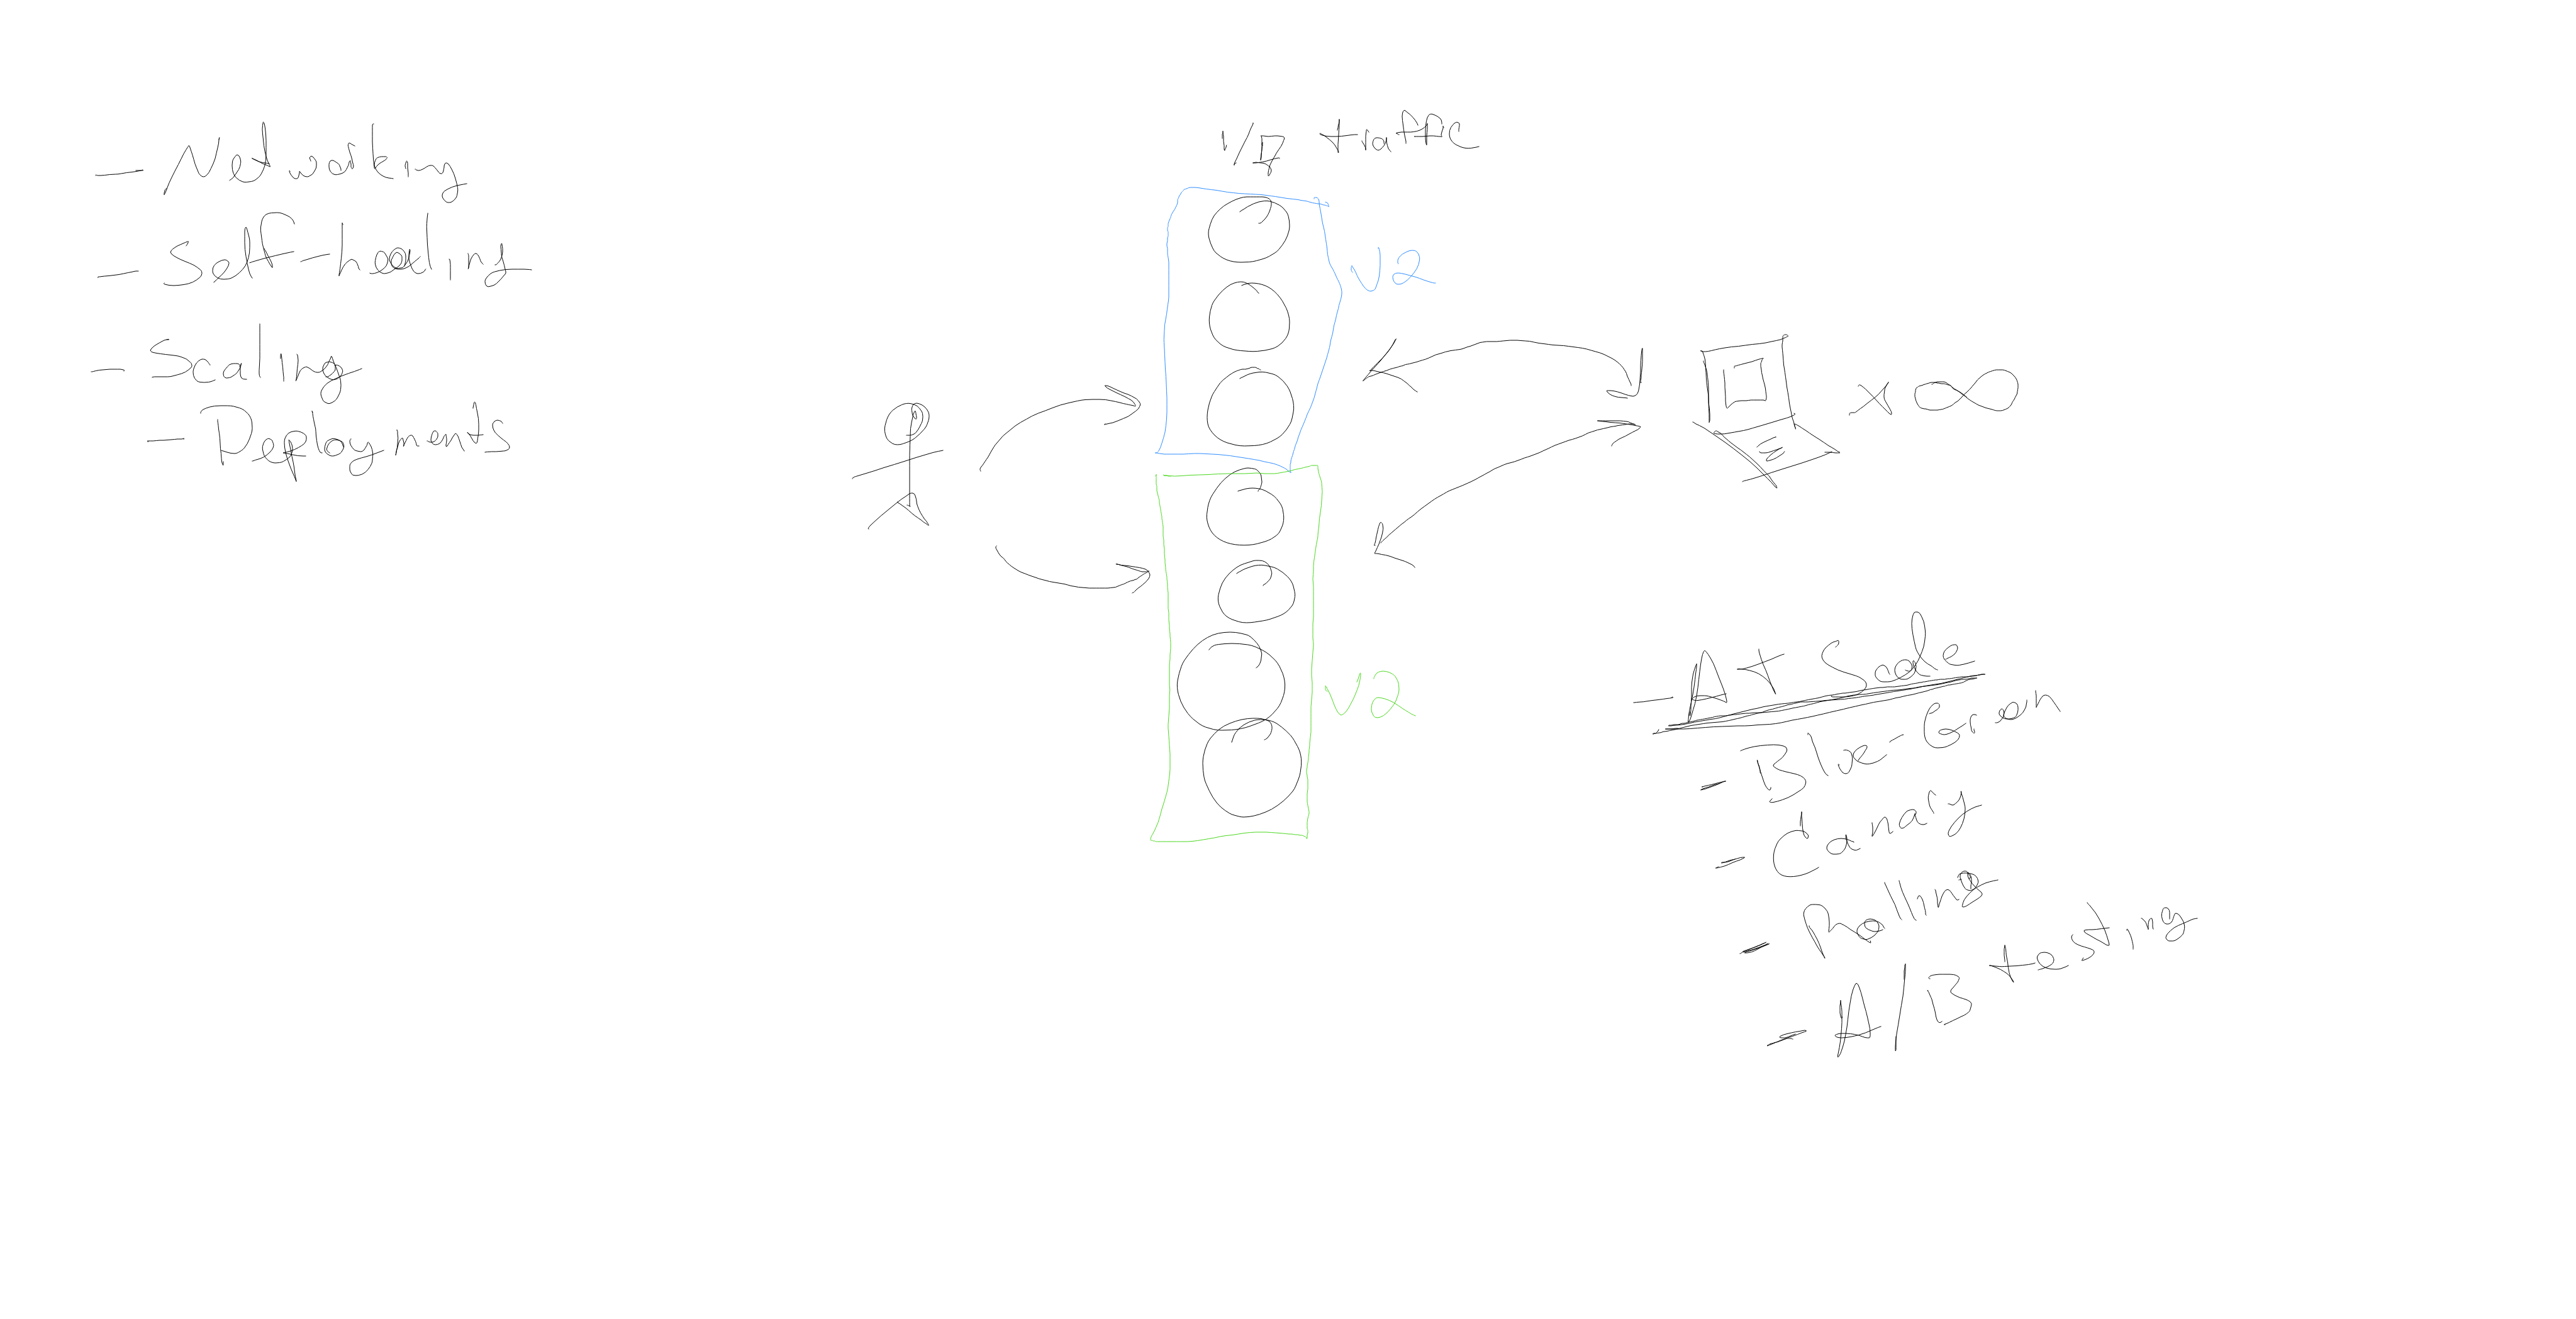 - Networking
- Self-healing
- Scaling
- Deployments
1/7 traffic
V2
x ∞
V2
- At Scale
- Blue-Green
- Canary
- Rolling
- A/B testing